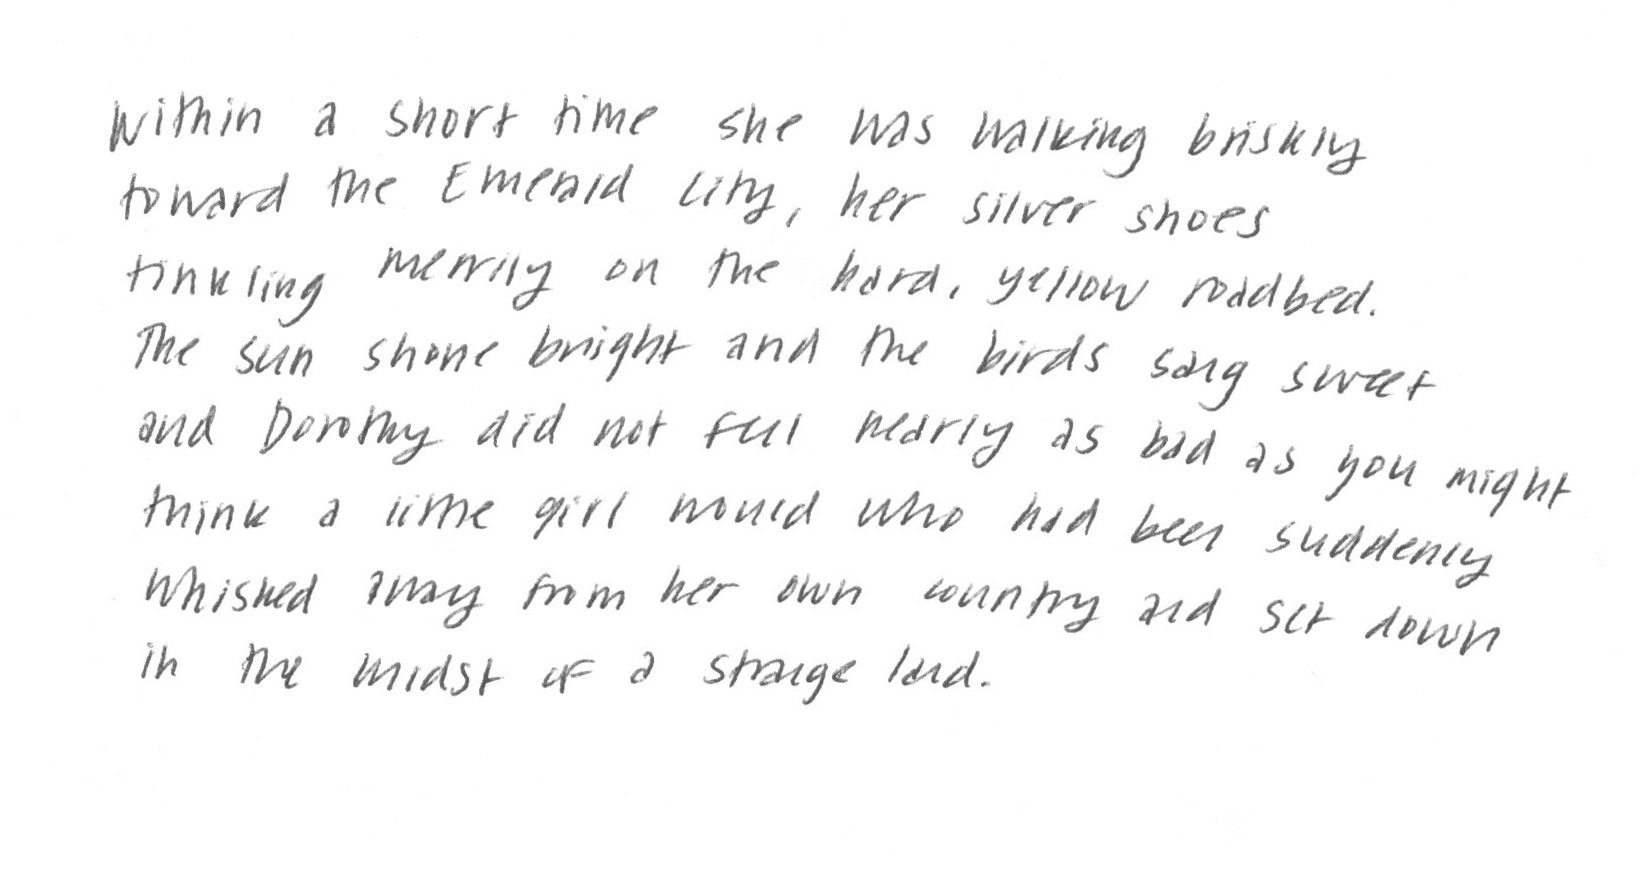 Within a short time she was walking briskly
toward the Emerald City, her silver shoes
tinkling merrily on the hard, yellow roadbed.
The sun shone bright and the birds sang sweet
and Dorothy did not feel nearly as bad as you might
think a little girl would who had been suddenly
whisked away from her own country and set down
in the midst of a strange land.